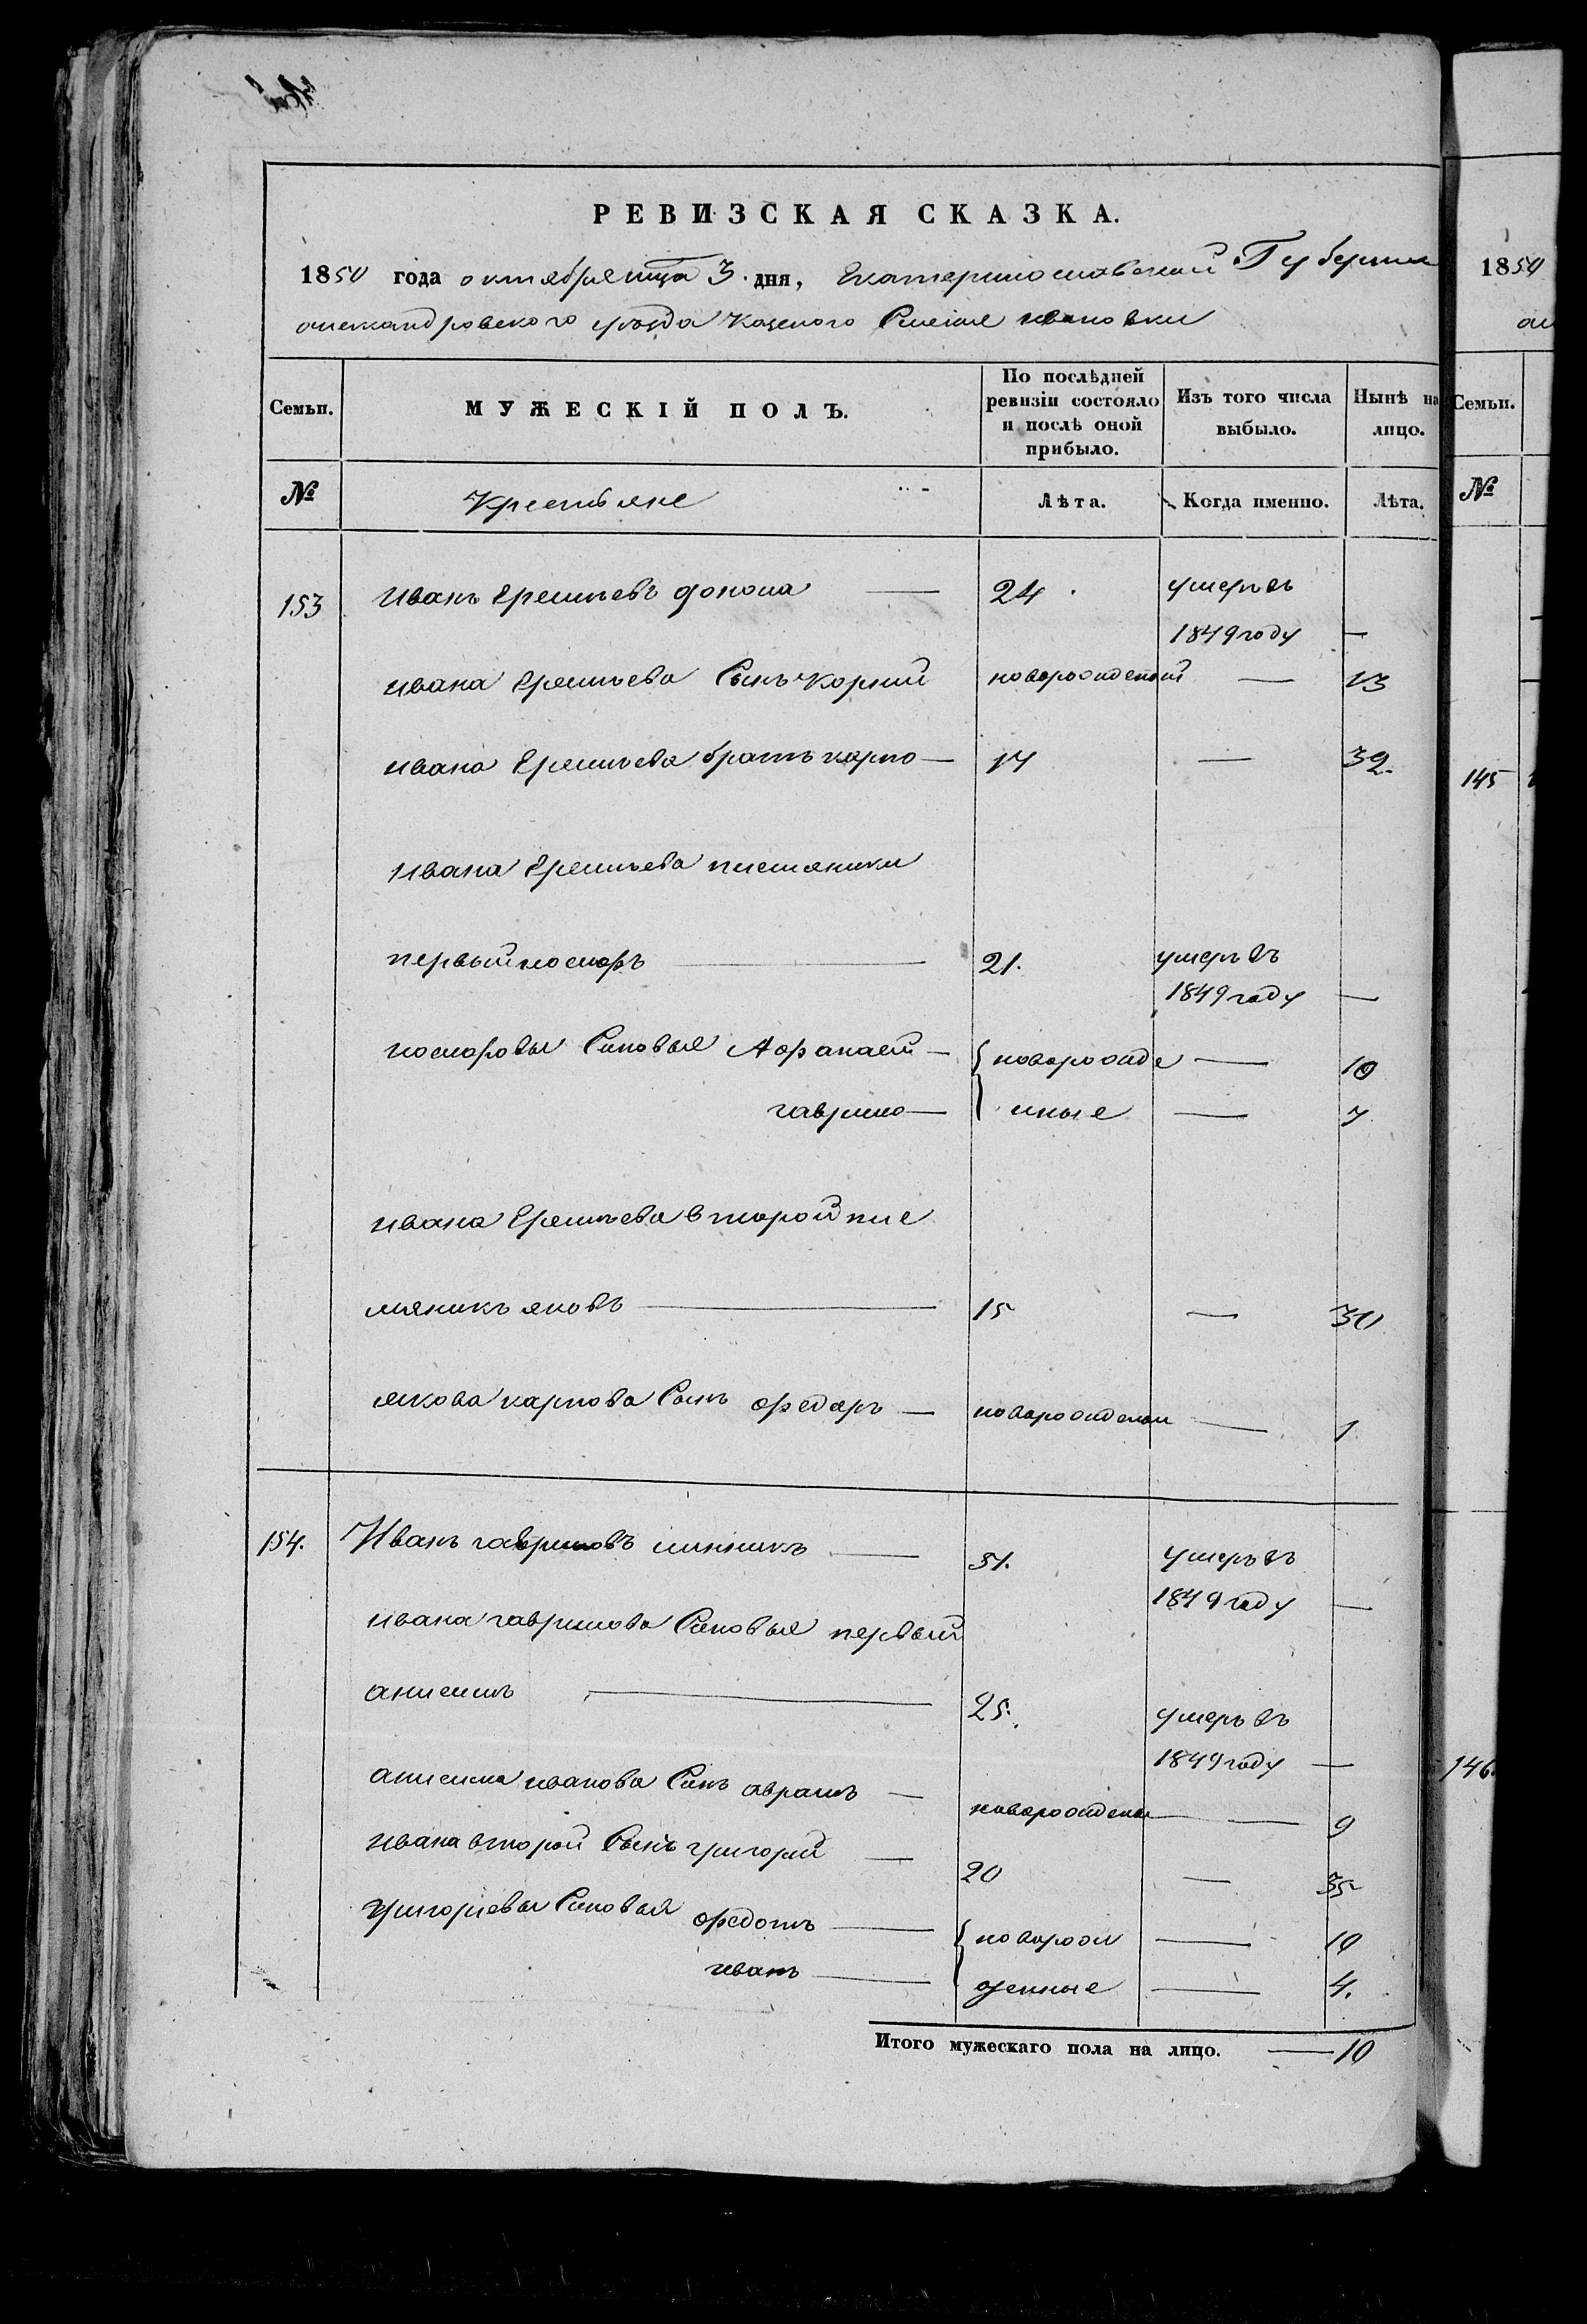 РЕВИЗСКАЯ СКАЗКА.
1850 года октября мца 3. дня, Екатеринославской Губернии
александровского уезда казеного Селения ивановки
Семьи. МУЖЕСКІЙ ПОЛЪ. По послѣдней ревизіи состояло и послѣ оной прибыло. Изъ того числа выбыло. Нынѣ на лицо.
№ Крестьяне Лѣта. Когда именно. Лѣта.
153 иванъ Еремѣевъ 24 умеръ въ
1849 году —
ивана Еремѣева Сынъ корний новорожденый — 13
ивана Еремѣева братъ карпо — 17 — 32.
ивана Еремѣева племяники
первый 21. умеръ въ
1849 году —
Синовья Афанасий — новорожде — 10
гаврило — нные — 7
ивана Еремѣева второй пле
мяникъ яковъ 15 — 30
якова карпова Сынъ федоръ — новорожденый — 1
154. Иванъ гавриловъ 51. умеръ въ
1849 году —
ивана гаврилова Синовья первый
анисимъ 25. умеръ въ
1849 году —
анисима иванова Синъ аврамъ — новорожденый — 9
ивана второй Сынъ григорий — 20 — 35
григориевы Синовья федотъ — новорож — 10
иванъ — денные — 4.
Итого мужескаго пола на лицо. — 10
1850
Семьи.
№
145
146.